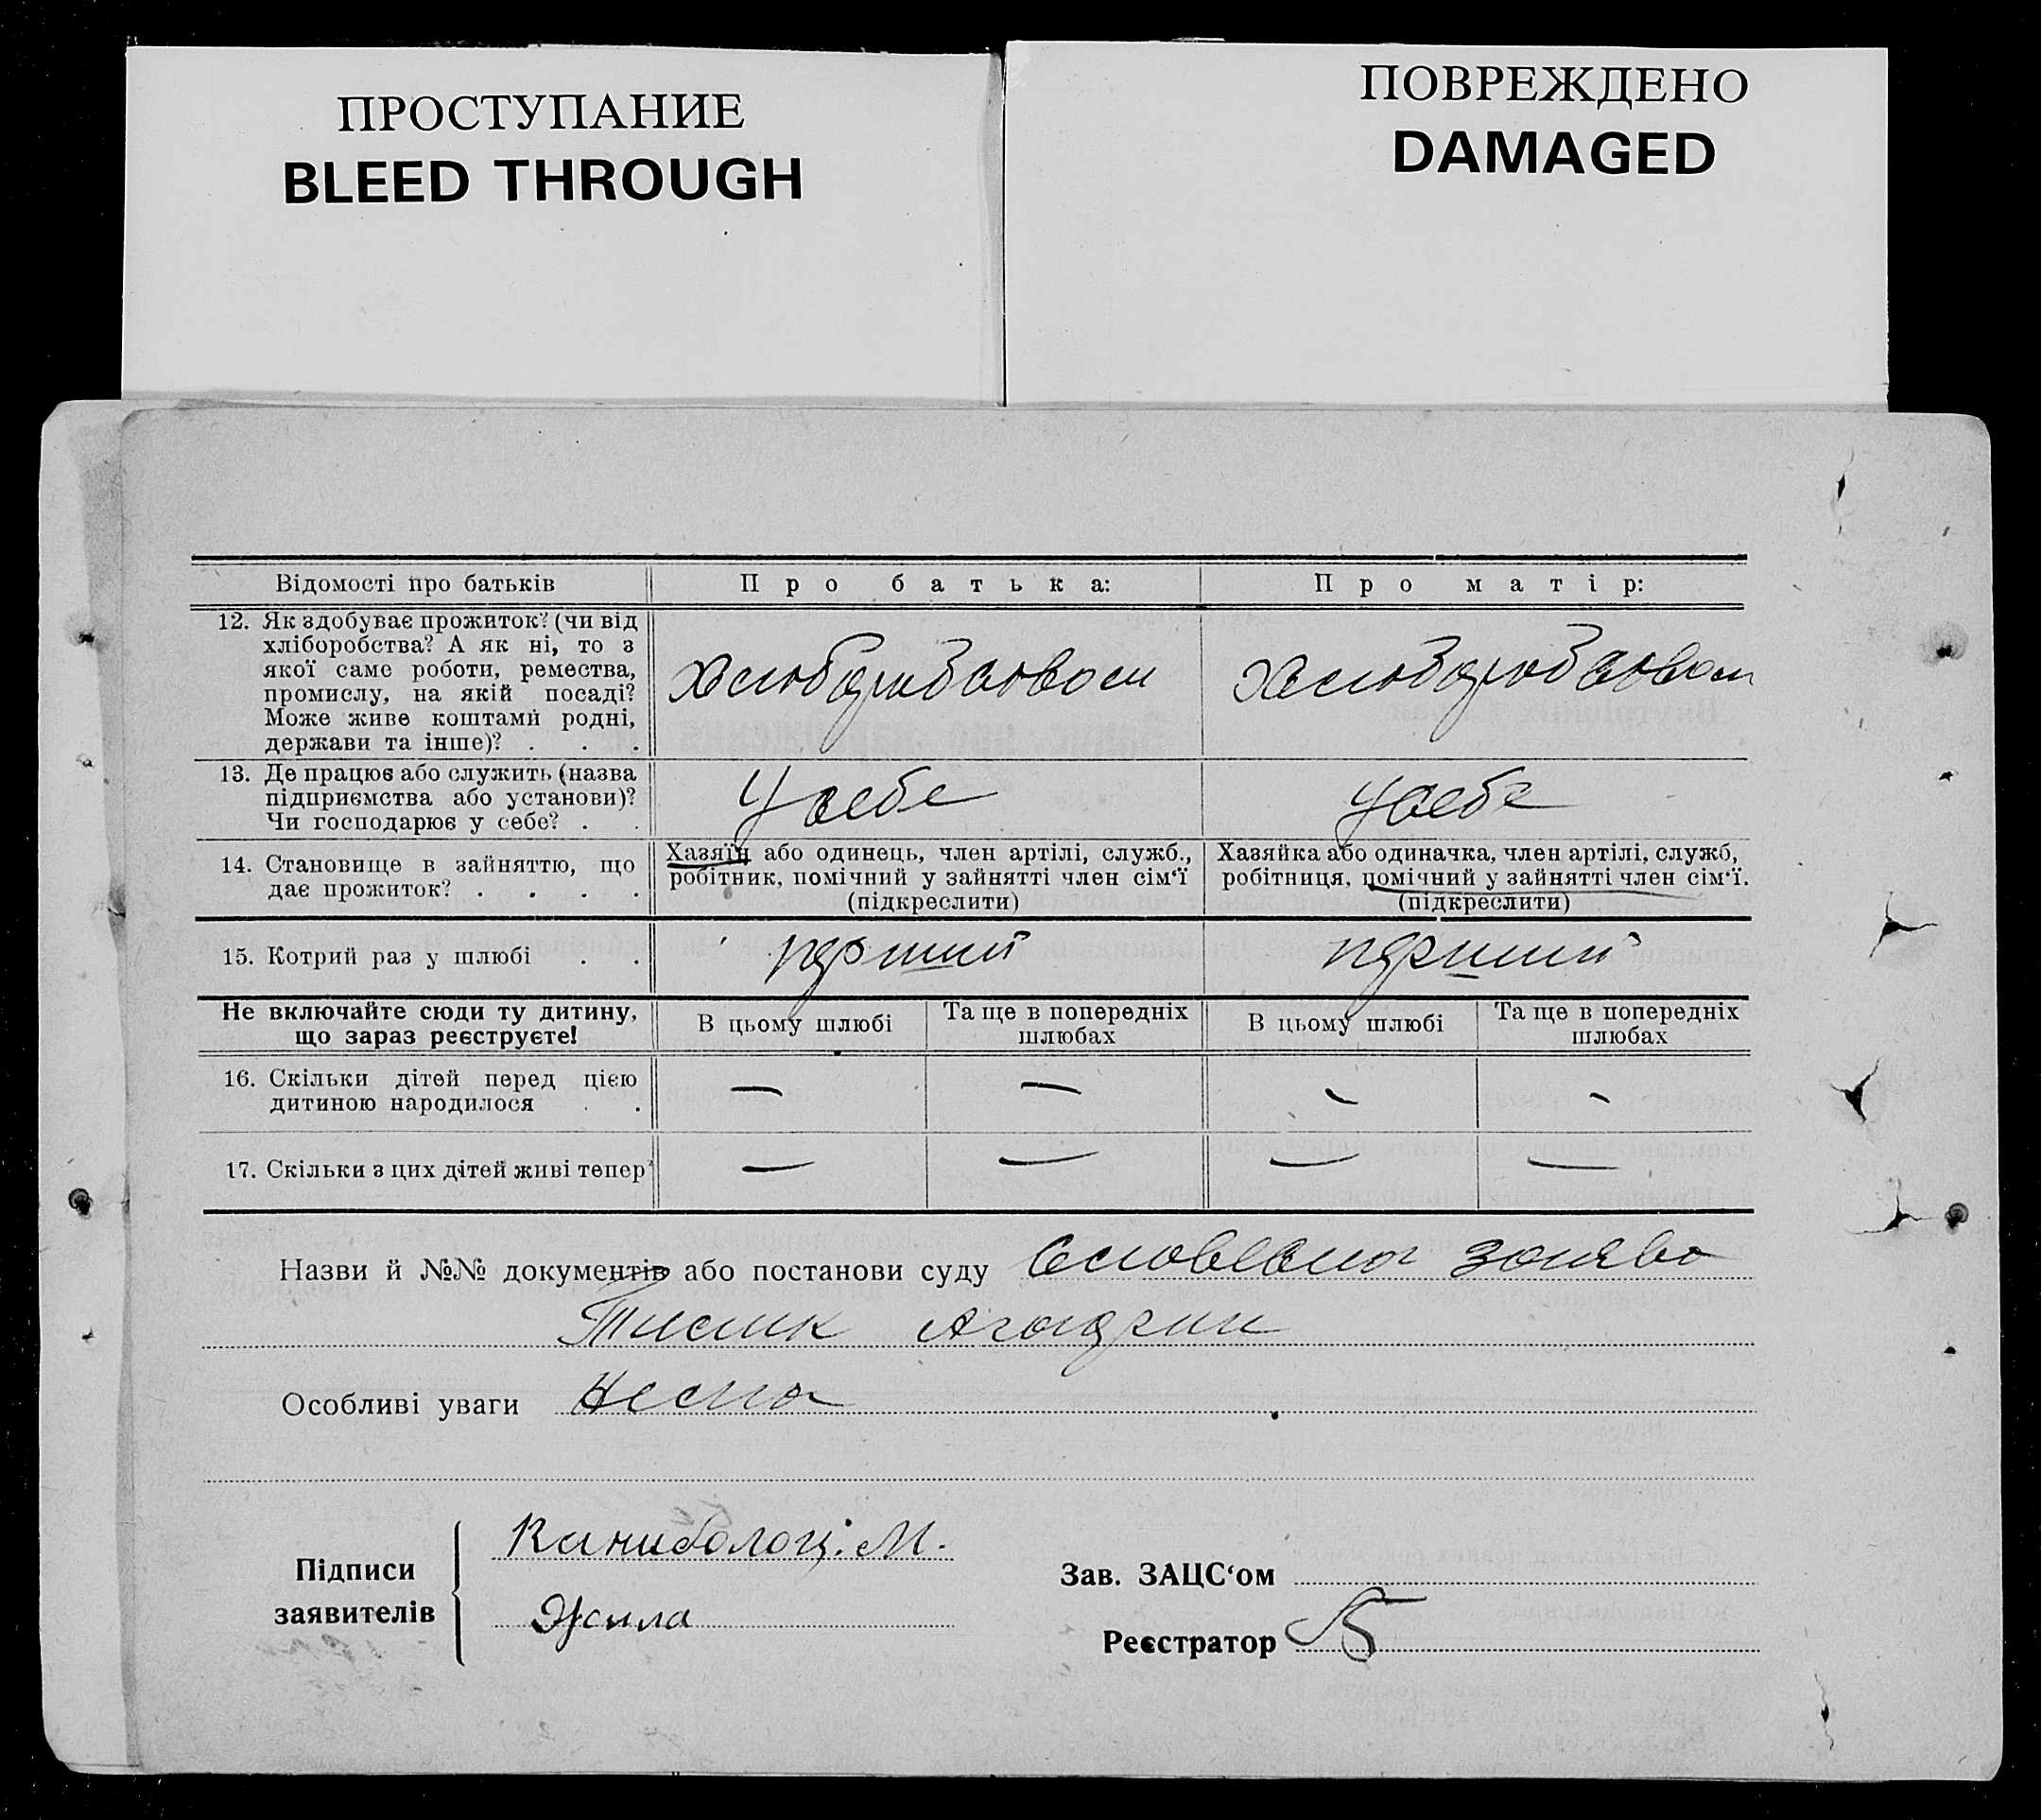 ПРОСТУПАНИЕ
BLEED THROUGH
ПОВРЕЖДЕНО
DAMAGED
Відомості про батьків
Про батька:
Про матір:
12. Як здобуває прожиток? (чи від
хліборобства? А як ні, то з
якої саме роботи, ремества,
промислу, на якій посаді?
Може живе коштами родні,
держави та інше)? . . .
13. Де працює або служить (назва
підприємства або установи)?
Чи господарює у себе? . .
У себе
У себе
14. Становище в зайняттю, що
дає прожиток? . . . .
Хазяїн або одинець, член артілі, служб.,
робітник, помічний у зайнятті член сім‘ї
(підкреслити)
Хазяйка або одиначка, член артілі, служб,
робітниця, помічний у зайнятті член сім‘ї.
(підкреслити)
15. Котрий раз у шлюбі . .
перший
перший
Не включайте сюди ту дитину,
що зараз реєструєте!
В цьому шлюбі
Та ще в попередніх
шлюбах
В цьому шлюбі
Та ще в попередніх
шлюбах
16. Скільки дітей перед цією
дитиною народилося . .
— — — -
17. Скільки з цих дітей живі тепер?
— — — —
Назви й №№ документів або постанови суду Словесна заява
Особливі уваги Нема
Підписи
заявителів
Каниболоц. М.
Жила
Зав. ЗАЦС‘ом
Реєстратор